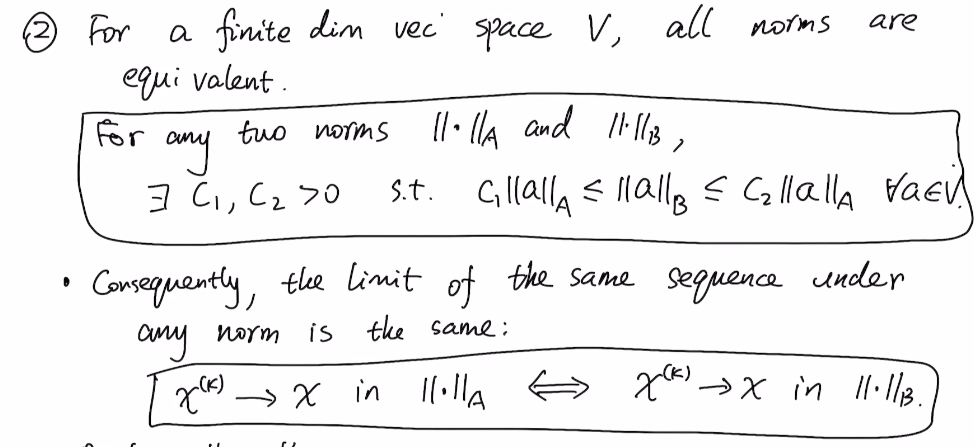 ② For a finite dim vec space V, all norms are
equivalent.
For any two norms ||·||_A and ||·||_B,
∃ C₁, C₂ >0 s.t. C₁||a||_A ≤ ||a||_B ≤ C₂||a||_A ∀a∈V.
• Consequently, the limit of the same sequence under
any norm is the same:
x^(k) → x in ||·||_A ⟺ x^(k) → x in ||·||_B.